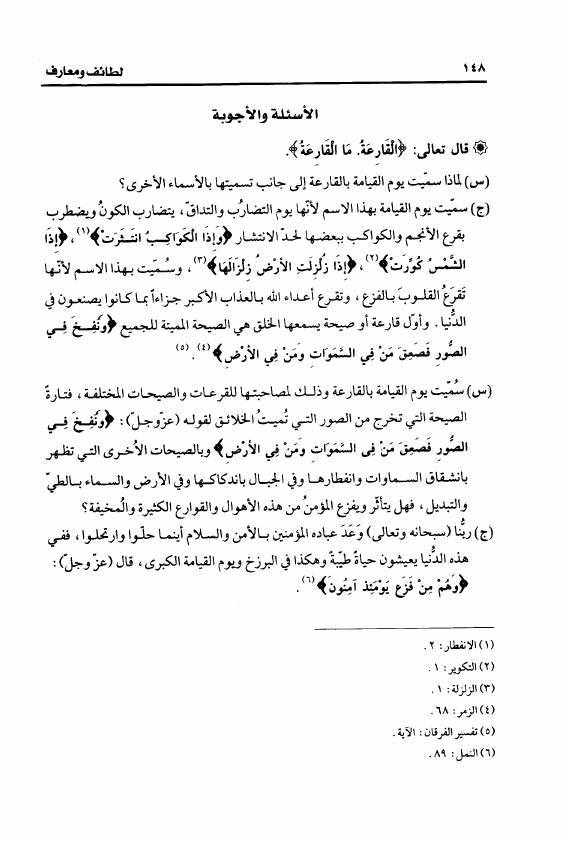 ١٤٨
لطائف ومعارف
الأسئلة والأجوبة
۞ قال تعالى: ﴿الْقَارِعَةُ. مَا الْقَارِعَةُ﴾.
(س) لماذا سمّيت يوم القيامة بالقارعة إلى جانب تسميتها بالأسماء الأخرى؟
(ج) سمّيت يوم القيامة بهذا الاسم لأنّها يوم التضارُب والتداقّ، يتضارب الكونُ ويضطرب
بقرع الأنجم والكواكب ببعضها لحدّ الانتشار ﴿وَإِذَا الْكَوَاكِبُ انتَثَرَتْ﴾(١)، ﴿إِذَا
الشَّمْسُ كُوِّرَتْ﴾(٢)، ﴿إِذَا زُلْزِلَتِ الأَرْضُ زِلْزَالَهَا﴾(٣)، وسُمّيت بهذا الاسم لأنّها
تَقرَعُ القلوبَ بالفزع، وتقرع أعداء الله بالعذاب الأكبر جزاءاً بما كانوا يصنعون في
الدُّنيا. وأوّل قارعة أو صيحة يسمعها الخلق هي الصيحة المميتة للجميع ﴿وَنُفِخَ فِي
الصُّورِ فَصَعِقَ مَنْ فِي السَّمَوَاتِ وَمَنْ فِي الأَرْضِ﴾(٤).(٥)
(س) سُمّيت يوم القيامة بالقارعة وذلك لمصاحبتها للقرعات والصيحات المختلفة، فتارةً
الصيحة التي تخرج من الصور التي تُميتُ الخلائق لقوله (عزّوجلّ): ﴿وَنُفِخَ فِي
الصُّورِ فَصَعِقَ مَنْ فِى السَّمَوَاتِ وَمَنْ فِي الأَرْضِ﴾ وبالصيحات الأُخرى التي تظهر
بانشقاق السماوات وانفطارها وفي الجبال باندكاكها وفي الأرض والسماء بالطيّ
والتبديل، فهل يتأثّر ويفزع المؤمنُ من هذه الأهوال والقوارع الكثيرة والُمخيفة؟
(ج) ربُّنا (سبحانه وتعالى) وَعَدَ عباده المؤمنين بالأمن والسلام أينما حلّوا وارتحلوا، ففي
هذه الدُّنيا يعيشون حياةً طيّبةً وهكذا في البرزخ ويوم القيامة الكبرى، قال (عزّ وجلّ):
﴿وَهُمْ مِنْ فَزَعٍ يَوْمَئِذٍ آمِنُونَ﴾(٦).
(١) الانفطار: ٢.
(٢) التكوير: ١.
(٣) الزلزلة: ١.
(٤) الزمر: ٦٨.
(٥) تفسير الفرقان: الآية.
(٦) النمل: ٨٩.